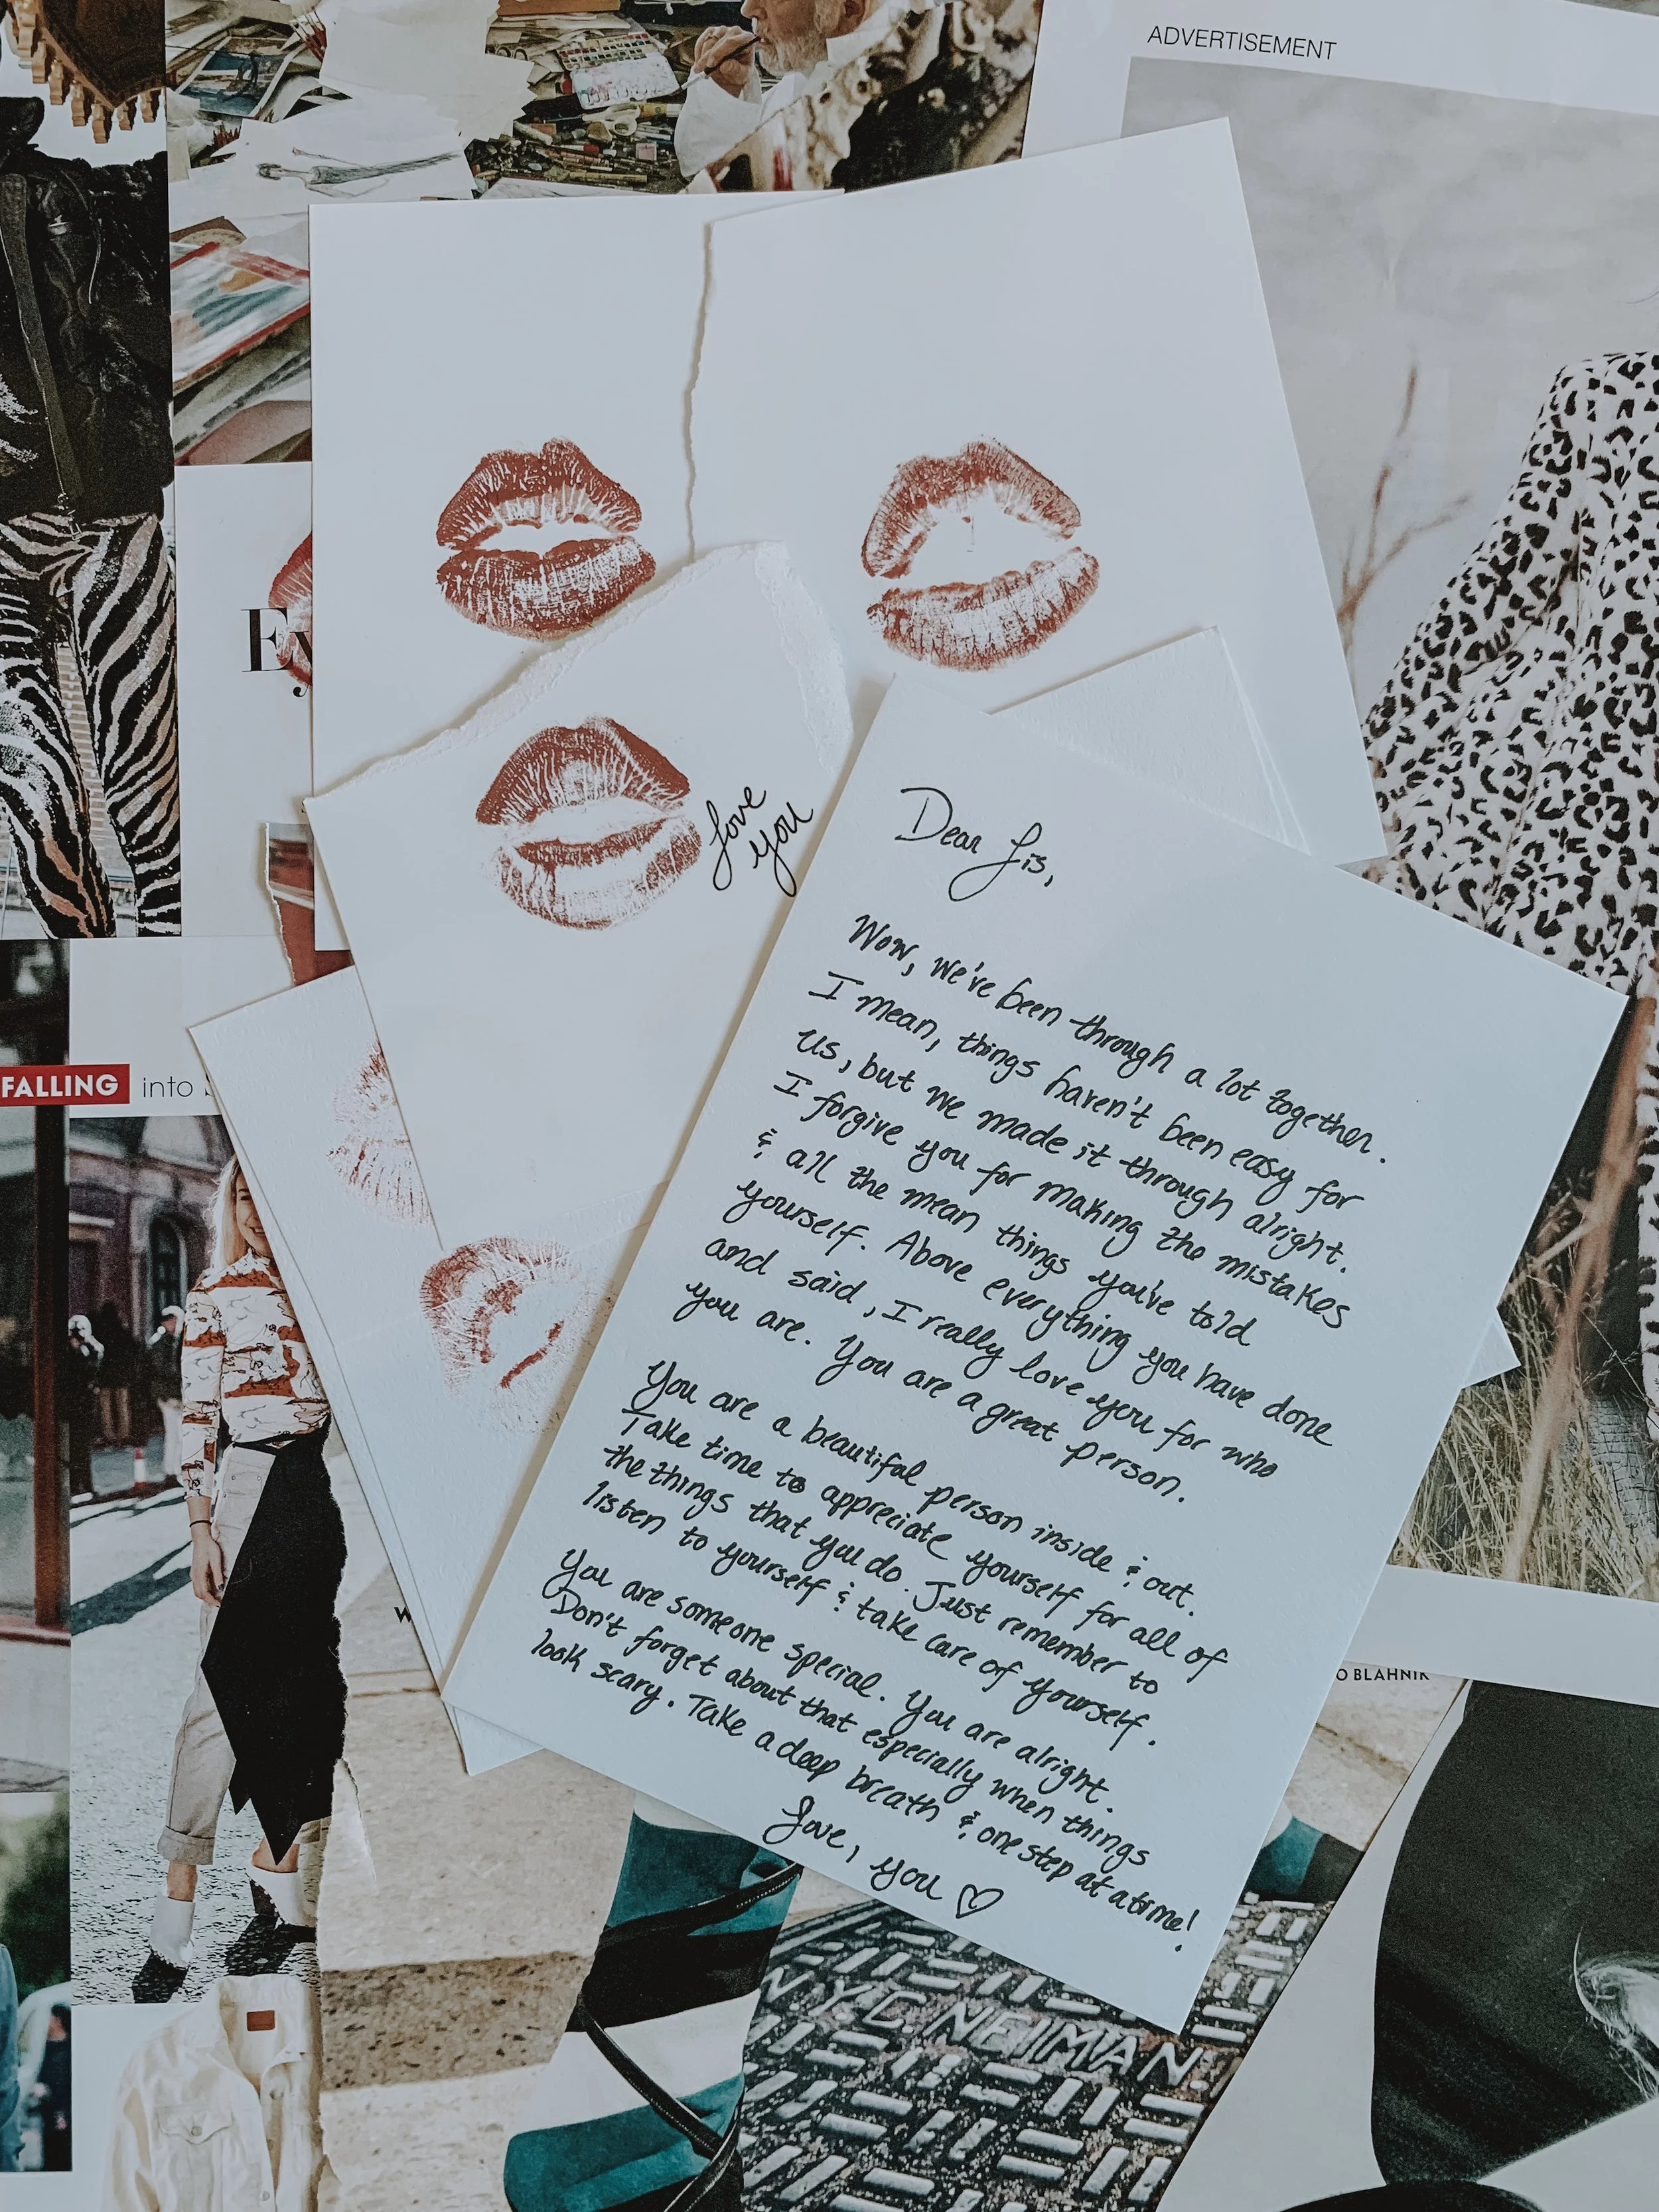 ADVERTISEMENT
Ey
love
you
Dear Lis,
Wow, we've been through a lot together.
I mean, things haven't been easy for
us, but we made it through alright.
I forgive you for making the mistakes
& all the mean things you've told
yourself. Above everything you have done
and said, I really love you for who
you are. You are a great person.
You are a beautiful person inside & out.
Take time to appreciate yourself for all of
the things that you do. Just remember to
listen to yourself & take care of yourself.
You are someone special. You are alright.
Don't forget about that especially when things
look scary. Take a deep breath & one step at a time!
Love, you ♡
FALLING into
W
O BLAHNIK
N.Y.C. NEIMAN.